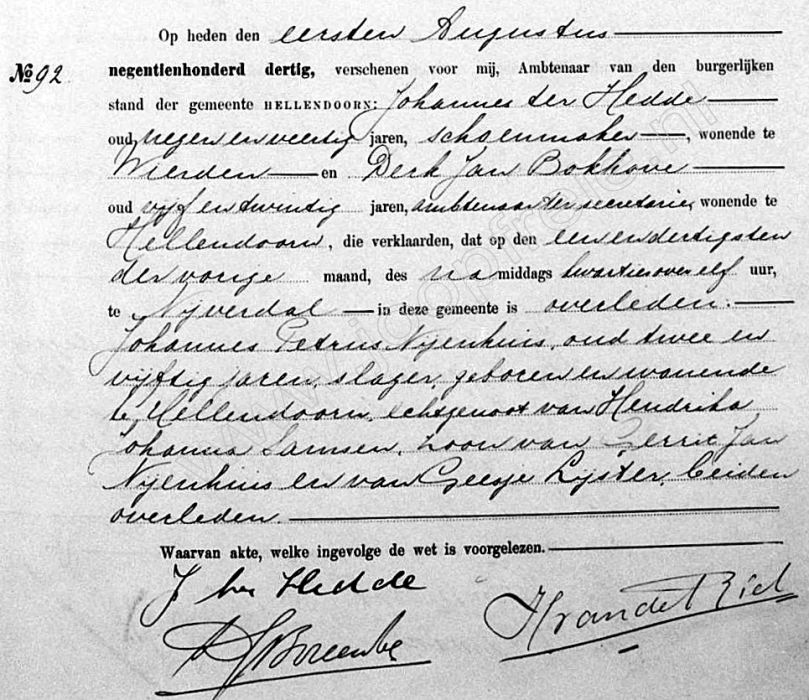 Op heden den eersten Augustus
No 92 negentienhonderd dertig, verschenen voor mij, Ambtenaar van den burgerlijken
stand der gemeente HELLENDOORN: Johannes ter Hedde
oud negen en veertig jaren, schoenmaker, wonende te
Wierden en Derk Jan Bokhove
oud vijf en twintig jaren, ambtenaar ter secretarie, wonende te
Hellendoorn, die verklaarden, dat op den een en dertigsten
der vorige maand, des na middags kwartier over elf uur,
te Nijverdal in deze gemeente is overleden:
Johannes Petrus Nijenhuis, oud twee en
vijftig jaren, slager, geboren en wonende
te Hellendoorn, echtgenoot van Hendrika
Johanna Samsen, zoon van Gerrit Jan
Nijenhuis en van Geesje Lijster, beiden
overleden.
Waarvan akte, welke ingevolge de wet is voorgelezen.
J ter Hedde